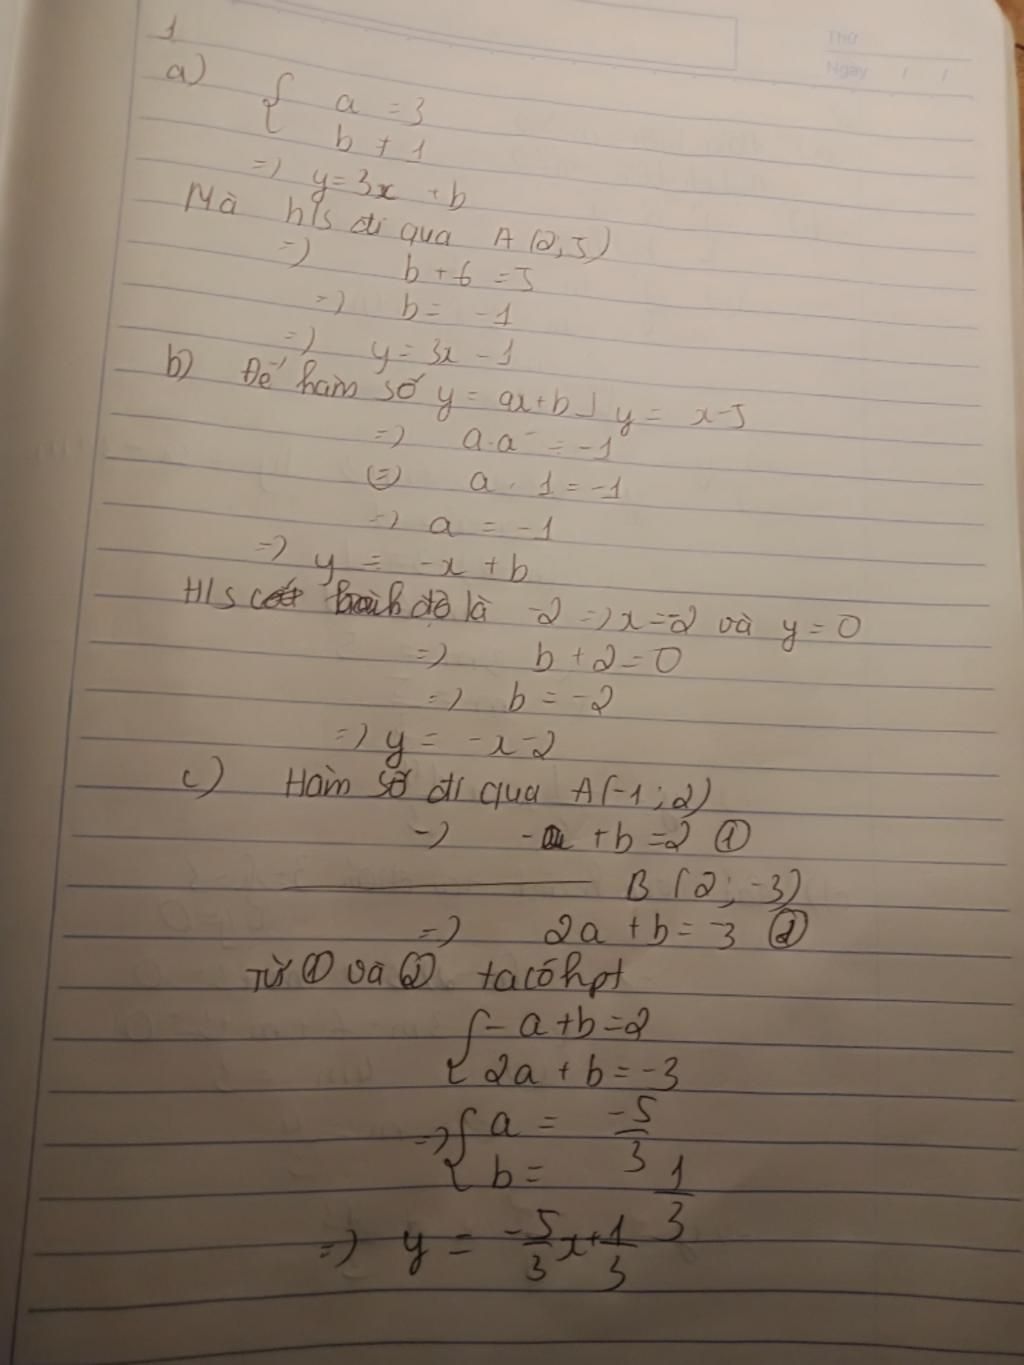 Thứ
Ngày / /
1
a) { a = 3
b ≠ 1
=> y = 3x + b
Mà h/s đi qua A (2; 5)
=> b + 6 = 5
=> b = -1
=> y = 3x - 1
b) Để hàm số y = ax + b ⊥ y = x - 5
=> a . a' = -1
(=) a . 1 = -1
=> a = -1
=> y = -x + b
H/s cắt hoành độ là -2 => x = -2 và y = 0
=> b + 2 = 0
=> b = -2
=> y = -x - 2
c) Hàm số đi qua A (-1; 2)
=> -a + b = 2 ①
——— B (2; -3)
=> 2a + b = -3 ②
Từ ① và ② ta có hpt
{ - a + b = 2
2a + b = -3
=> { a = -5/3
b = 1/3
=> y = -5/3 x + 1/3